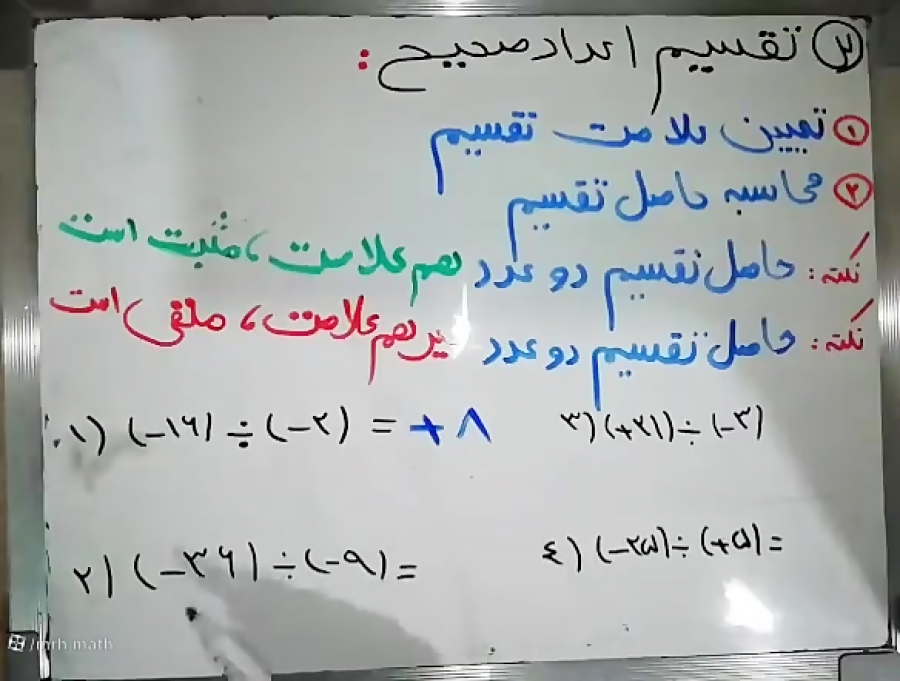 ③ تقسیم اعداد صحیح :
① تعیین علامت تقسیم
② محاسبه حاصل تقسیم
نکته: حاصل تقسیم دو عدد هم علامت، مثبت است
نکته: حاصل تقسیم دو عدد غیر هم علامت، منفی است
۱) (-۱۶) ÷ (-۲) = +۸
۳) (+۲۱) ÷ (-۳)
۲) (-۳۶) ÷ (-۹) =
٤) (-۲۵) ÷ (+۵) =
/mrh.math